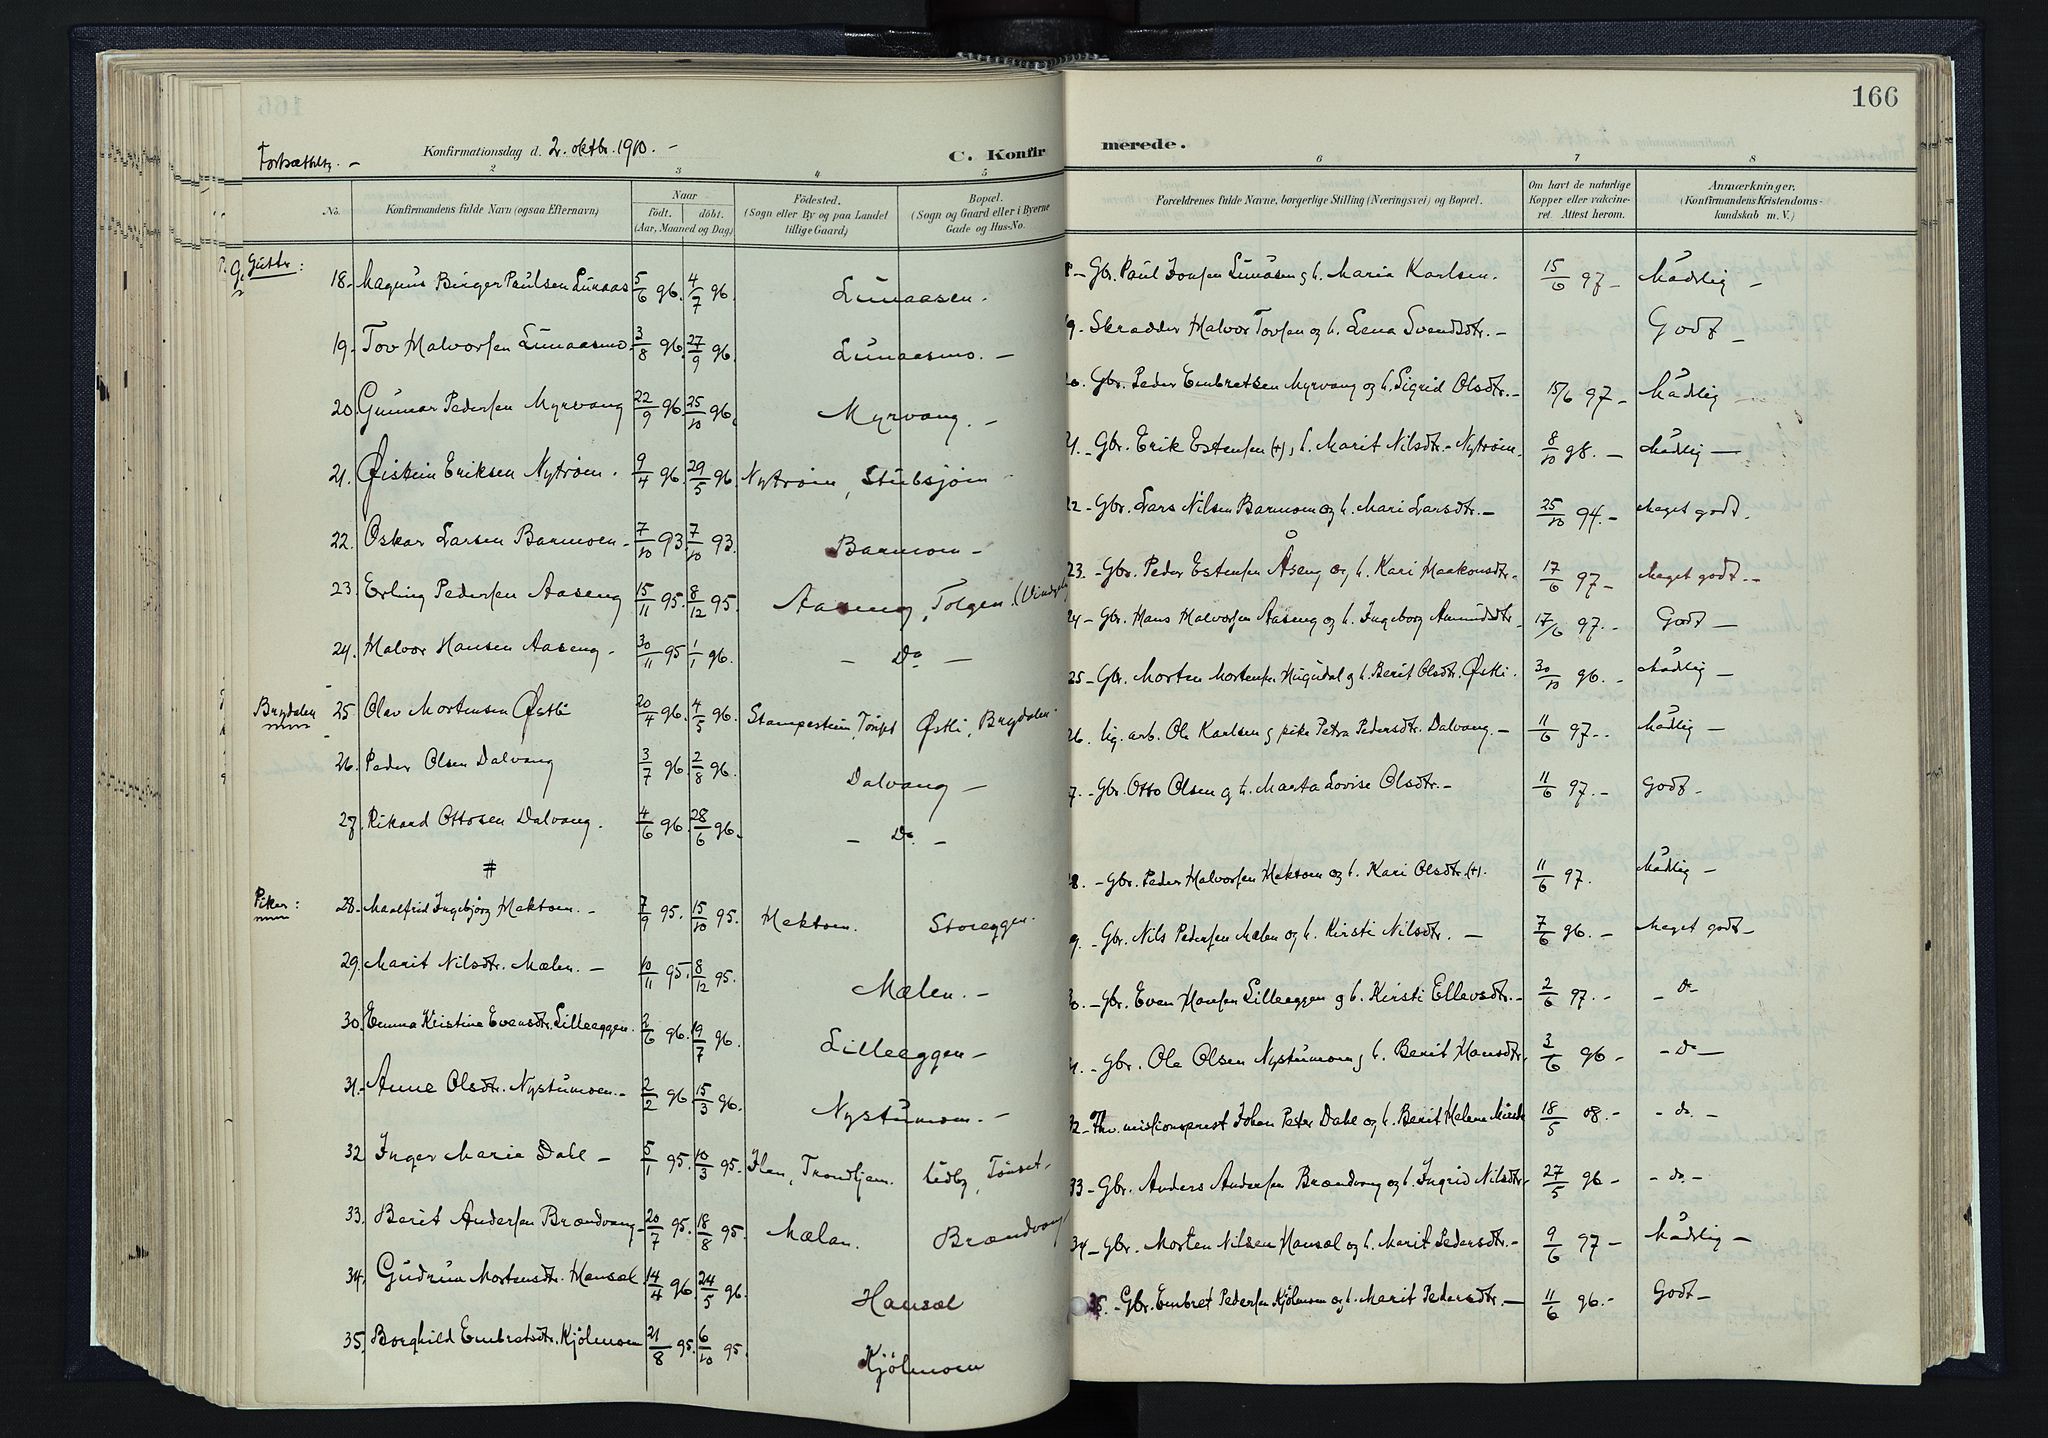 166
Fortsættelse. –
Konfirmationsdag d. 2. oktbr. 1910. –
C. Konfirmerede.
2 3 4 5 6 7 8
No.
Konfirmandens fulde Navn (ogsaa Efternavn)
Naar
født. døbt.
(Aar, Maaned og Dag)
Fødested.
(Sogn eller By og paa Landet
tillige Gaard)
Bopæl.
(Sogn og Gaard eller i Byerne
Gade og Hus-No.
Forældrenes fulde Navne, borgerlige Stilling (Næringsvei) og Bopæl.
Om havt de naturlige
Kopper eller vakcine-
ret. Attest herom.
Anmærkninger.
(Konfirmandens Kristendoms-
kundskab m. V.)
Gutter:
18. Magnus Birger Paulsen Lunaas 5/6 96. 4/7 96. Lunaasen. – Gbr. Paul Jonsen Lunåsen og h. Maria Karlsen. 15/6 97 – Mådelig –
19. Tov Halvorsen Lunaasmo. 3/8 96. 27/9 96. Lunaasmo. – Skrædder Halvor Tovsen og h. Lena Svendsdtr. – Godt –
20. Gunnar Pedersen Myrvang 22/9 96. 25/10 96. Myrvang. – Gbr. Peder Embretsen Myrvang og h. Sigrid Olsdtr. – 15/6 97 – Mådelig –
21. Øistein Eriksen Nytrøen. 9/4 96. 29/5 96. Nytrøen, Stubsjøen – Gbr. Erik Estensen (+), h. Marit Nilsdtr. – Nytrøen. 8/10 98. – Mådelig –
22. Oskar Larsen Barmoen – 7/10 93. 7/10 93. Barmoen – Gbr. Lars Nilsen Barmoen og h. Mari Larsdtr. – 25/10 94. – Meget godt.
23. Erling Pedersen Aaseng 15/11 95. 8/12 95. Aaseng, Tolgen. – Gbr. Peder Estensen Åseng og h. Kari Haakonsdtr. 17/6 97 – Meget godt. –
24. Halvor Hansen Aaseng. – 30/11 95 1/1 96. – Do – Gbr. Hans Halvorsen Aaseng og h. Ingeborg Amundsdtr. 17/6 97. – Godt –
Brydalen 25. Olav Mortensen Østli 20/4 96. 4/5 96. Stampestuen, Tönset Østli, Brydalen. Gbr. Morten Mortensen Hugudal og h. Berit Olsdtr. Østli. 30/10 96. – Mådelig –
26. Peder Olsen Dalvang 3/7 96. 2/8 96. Dalvang – Ug. arb. Ole Karlsen og pike Petra Pedersdtr. Dalvang. – 11/6 97. – Mådelig –
27. Rikard Ottosen Dalvang. 4/6 96. 28/6 96. – Do. – Gbr. Otto Olsen og h. Marta Lovise Olsdtr. – 11/6 97. – Godt –
#
Piker:
28. Maalfrid Ingebjørg Hektoen. – 7/9 95. 15/10 95. Hektoen. Storeggen. – Gbr. Peder Halvorsen Hektoen og h. Kari Olsdtr. (+). 11/6 97. Mådelig –
29. Marit Nilsdtr. Mælen. – 10/11 95. 8/12 95. Mælen. – Gbr. Nils Pedersen Mælen og h. Kirsti Nilsdtr. – 7/6 96. – Meget godt –
30. Emma Kristine Evensdtr. Lilleeggen. 2/6 96. 19/7 96. Lilleeggen – Gbr. Even Hansen Lilleeggen og h. Kirsti Ellevsdtr. – 2/6 97. – – do –
31. Anne Olsdtr. Nystumoen. – 2/2 96. 15/3 96. Nystumoen. – Gbr. Ole Olsen Nystumoen og h. Berit Hansdtr. 3/6 96 – – Do –
32. Inger Marie Dahl – 5/1 95. 10/3 95. Ilen, Trondhjem. Udby, Tönset – Fhv. misionsprest Johan Peter Dahl og h. Berit Helene 18/5 08. – – do. –
33. Berit Andersen Brændvang – 20/7 95. 18/8 95. Mælan. Brændvang – Gbr. Anders Andersen Brændvang og h. Ingrid Nilsdtr. 27/5 96 – – do. –
34. Gudrun Mortensdtr. Hansæl 14/4 96. 24/5 96. Hansæl – Gbr. Morten Nilsen Hansæl og h. Marit Pedersdtr. – 9/6 97 – Mådelig –
35. Borghild Embretsdtr. Kjölmoen 21/8 95. 6/10 95. Kjölmoen – Gbr. Embret Pedersen Kjölmoen og h. Marit Pedersdtr. – 11/6 96. – Godt –